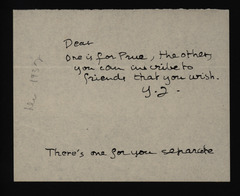 Dear
One is for Prue, the other,
you can inscribe to
friends that you wish.
Y. J.
There's one for you separate